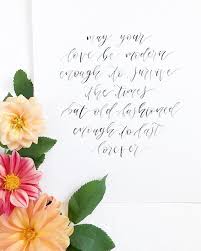 may your
love be modern
enough to survive
the times
but old fashioned
enough to last
forever